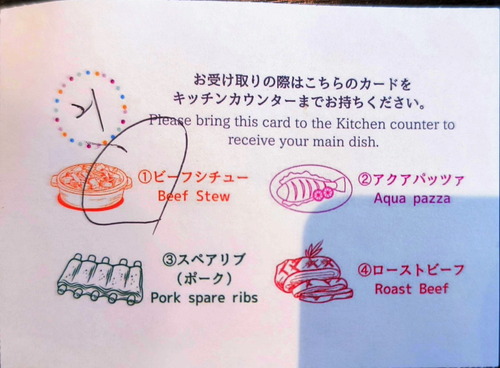 21
お受け取りの際はこちらのカードを
キッチンカウンターまでお持ちください。
Please bring this card to the Kitchen counter to
receive your main dish.
①ビーフシチュー
Beef Stew
②アクアパッツァ
Aqua pazza
③スペアリブ
（ポーク）
Pork spare ribs
④ローストビーフ
Roast Beef